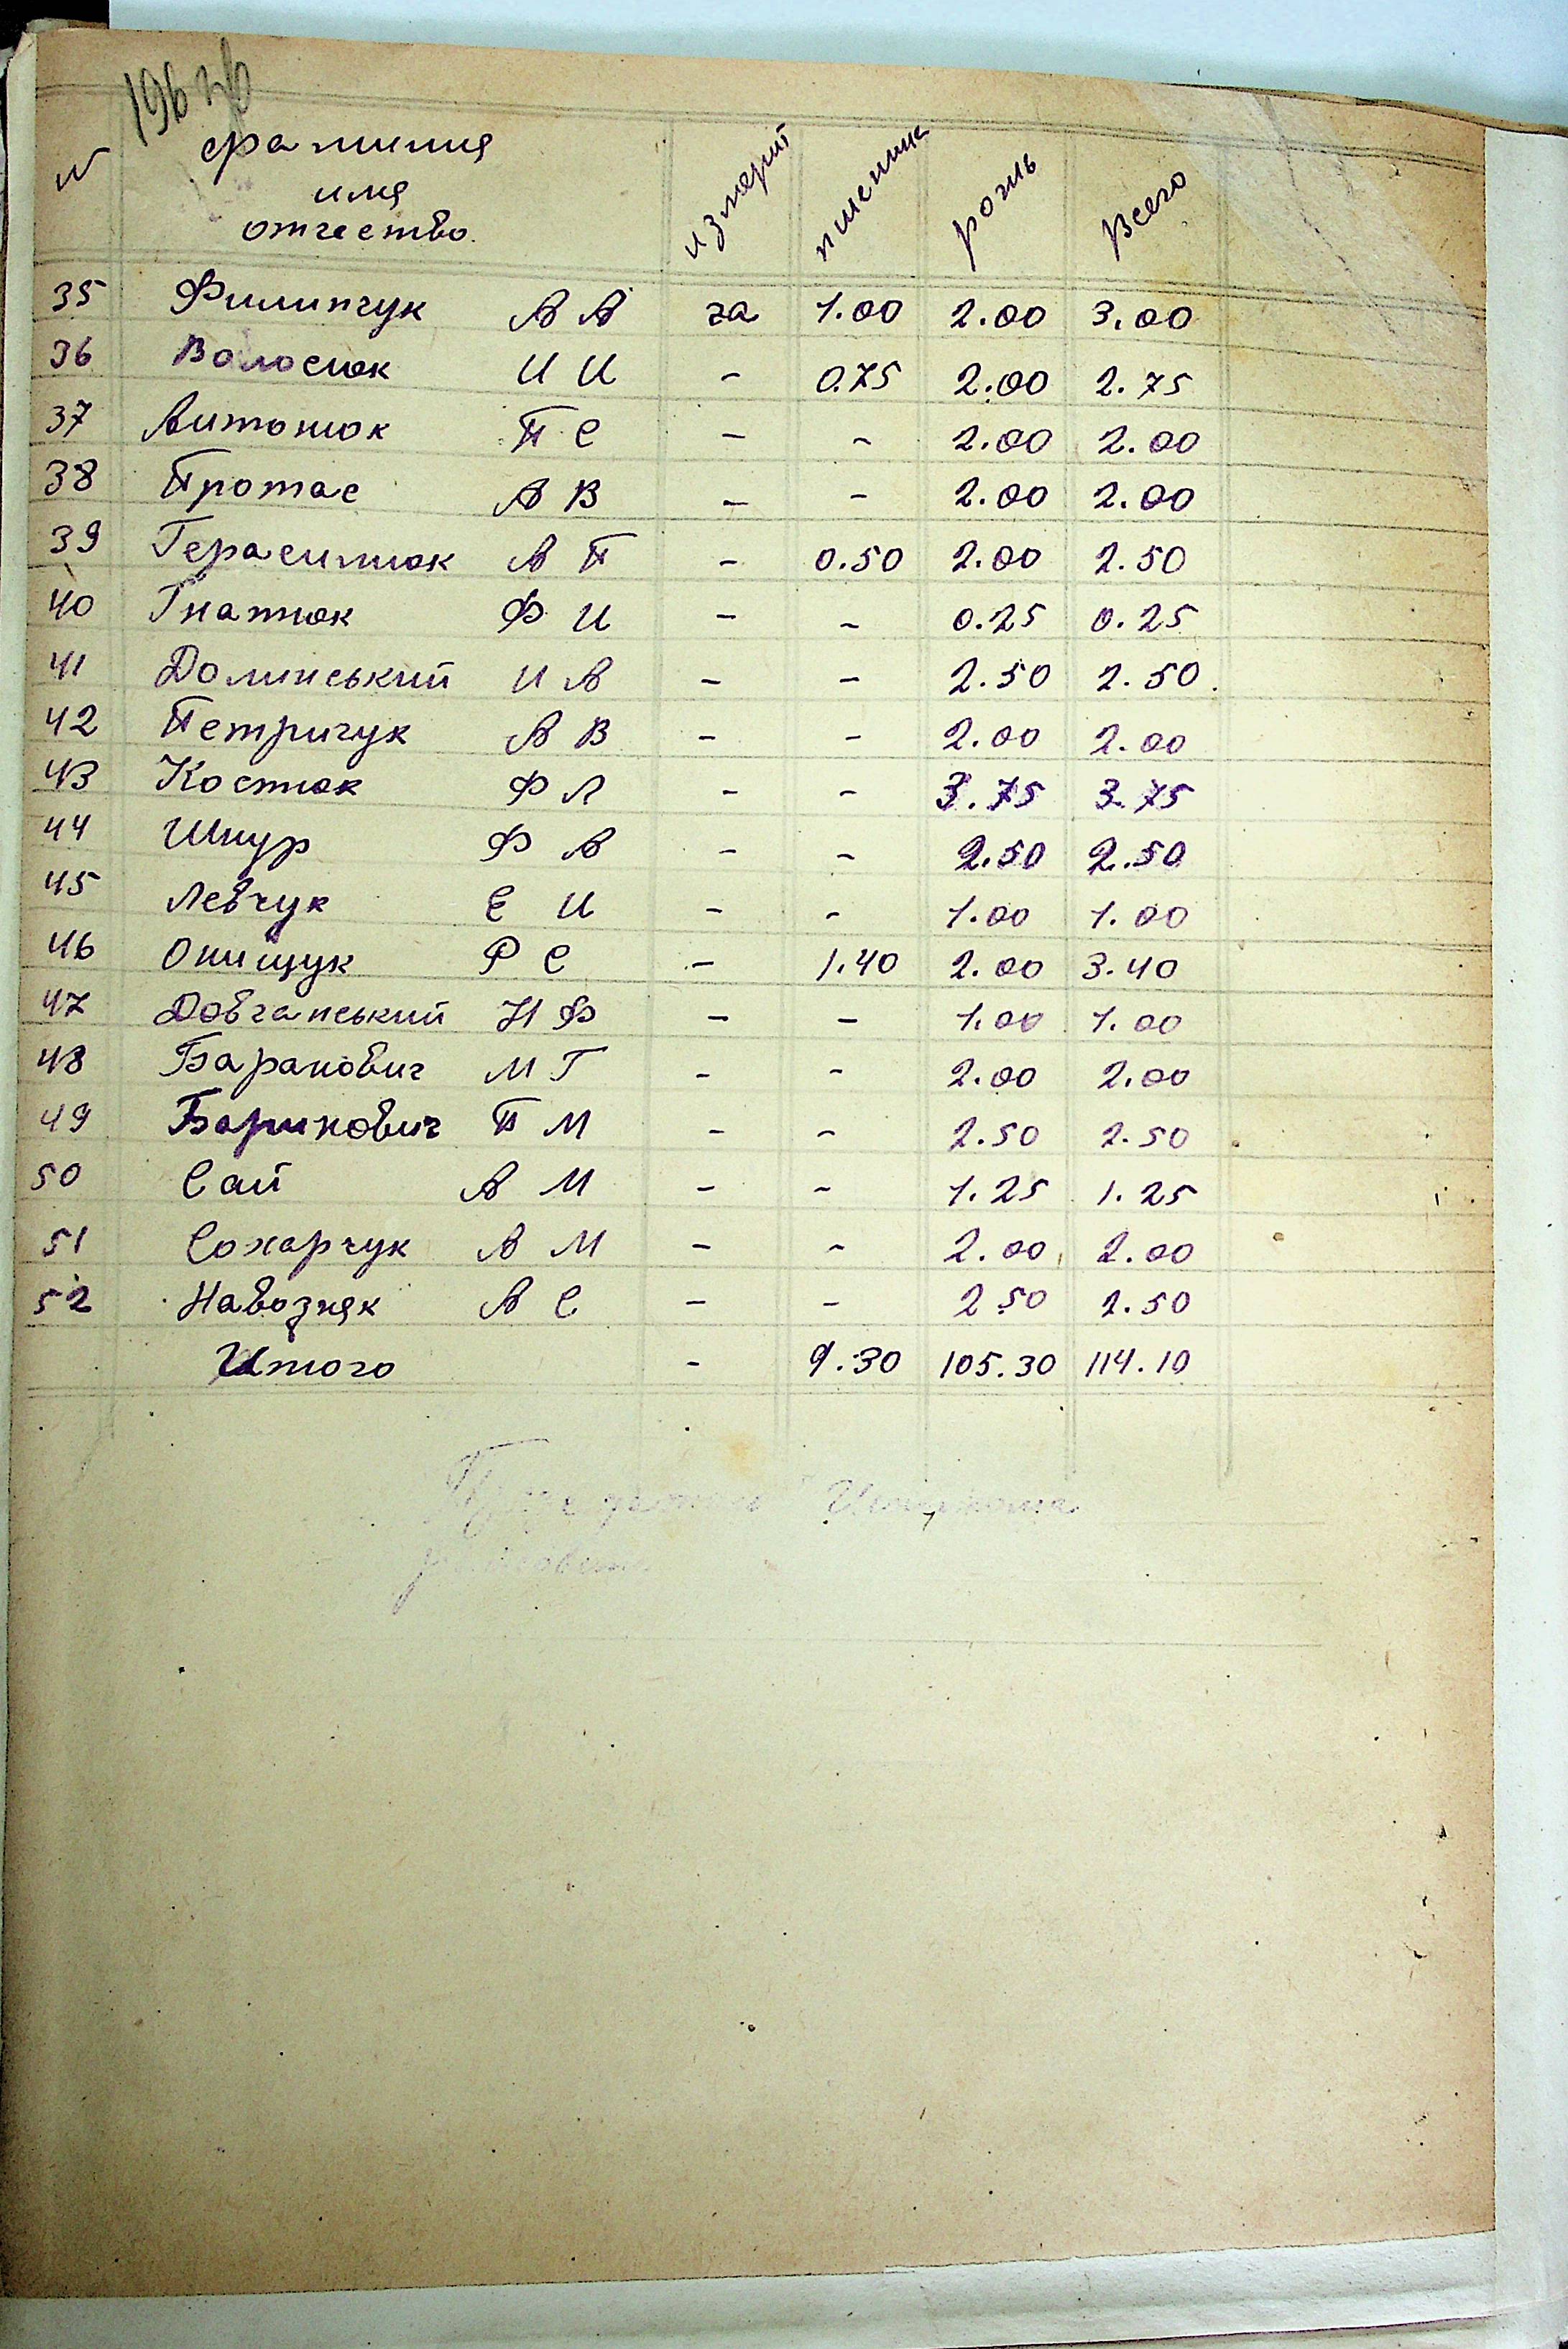 196 зв
N фамилия имя отчество. измерит пшениц рожь всего
35 Филипчук А А га 1.00 2.00 3.00
36 Волосюк И И - 0.75 2.00 2.75
37 Антонюк П С - - 2.00 2.00
38 Протас А В - - 2.00 2.00
39 Герасимюк А П - 0.50 2.00 2.50
40 Гнатюк Ф И - - 0.25 0.25
41 Долинський И А - - 2.50 2.50
42 Петричук А В - - 2.00 2.00
43 Костюк Ф Л - - 3.75 3.75
44 Шнур Ф А - - 2.50 2.50
45 Левчук Е И - - 1.00 1.00
46 Онищук Р С - 1.40 2.00 3.40
47 Довганський Н Ф - - 1.00 1.00
48 Баранович М Г - - 2.00 2.00
49 Баринович П М - - 2.50 2.50
50 Сай А М - - 1.25 1.25
51 Сохарчук А М - - 2.00 2.00
52 Навозняк А С - - 2.50 2.50
Итого - 9.30 105.30 114.10